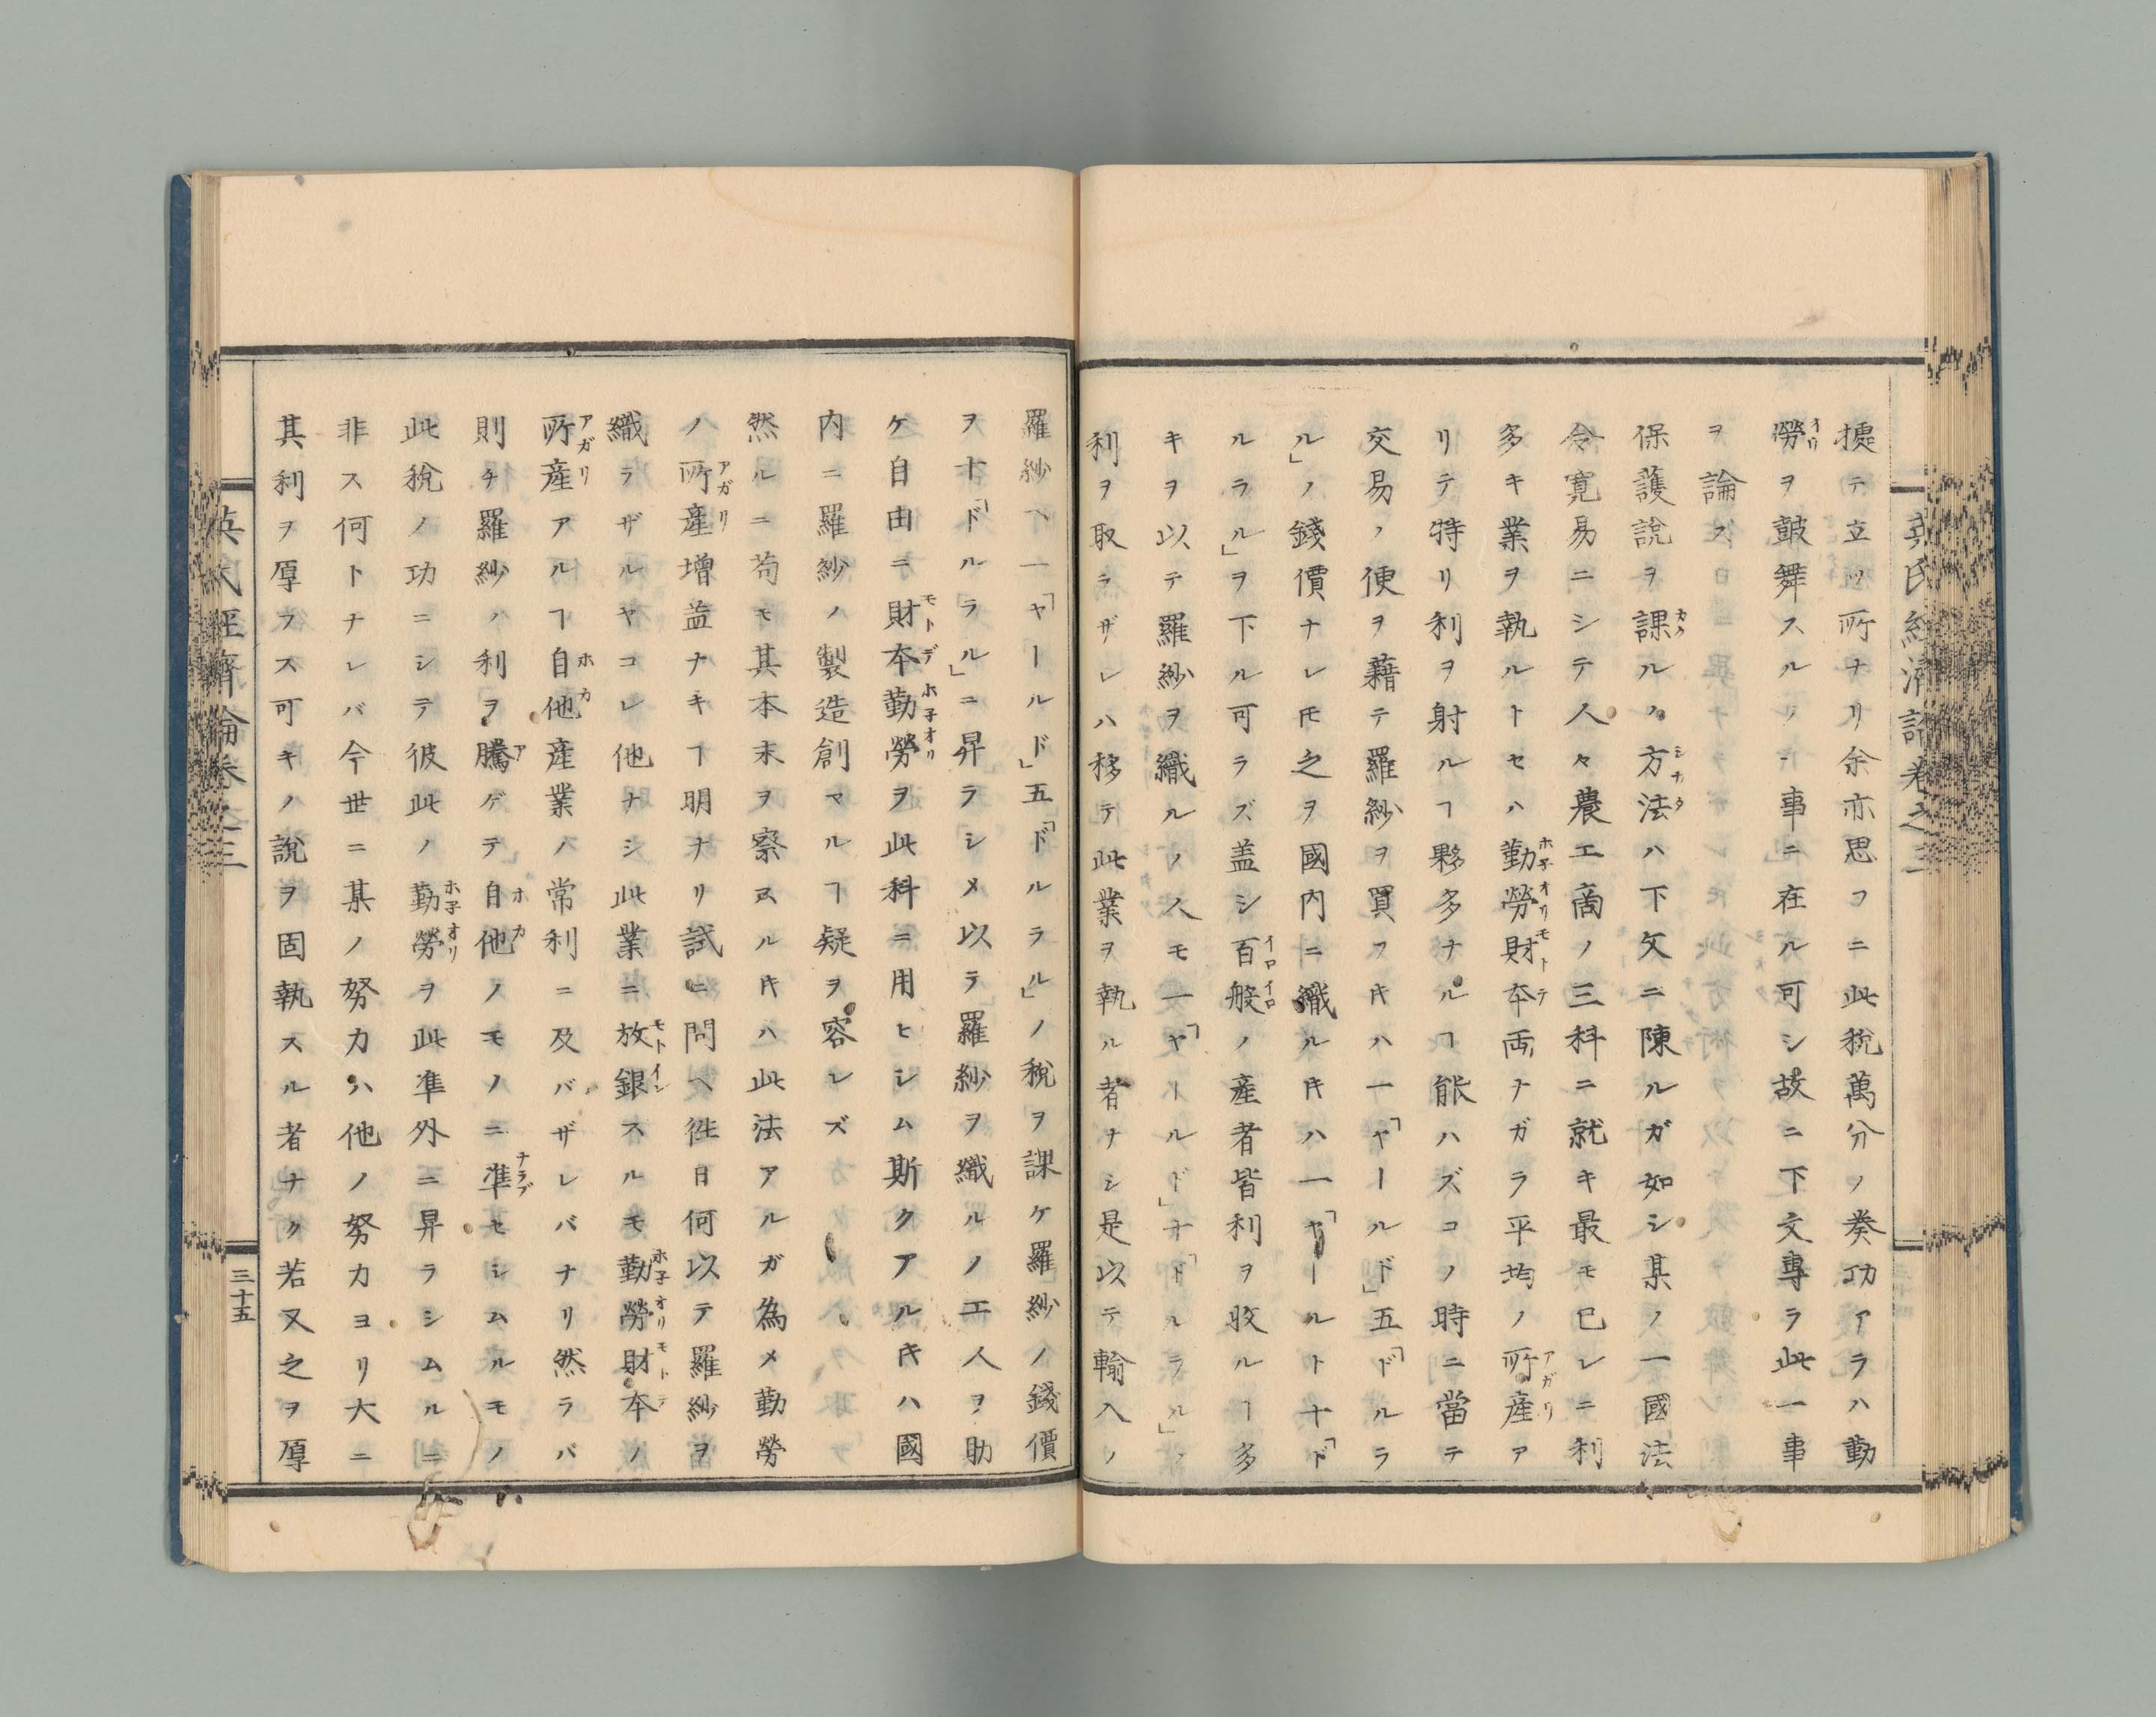 據テ立ツ所ナリ余亦思フニ此稅萬分ノ奏功アラハ勤
勞ヲ皷舞スルノ一事ニ在ル可シ故ニ下文專ラ此一事
ヲ論ス
保護說ヲ課ルノ方法ハ下文ニ陳ルガ如シ某ノ一國法
令寛易ニシテ人々農工啇ノ三科ニ就キ最モ已レニ利
多キ業ヲ執ルトセハ勤勞財本両ナガラ平均ノ所產ア
リテ特リ利ヲ射ルヿ夥多ナルヿ能ハズコノ時ニ當テ
交易ノ便ヲ藉テ羅紗ヲ買フキハ一「ヤールド」五「ドルラ
ル」ノ錢價ナレ𪜈之ヲ國内ニ織ルキハ一「ヤールト十「ド
ルラル」ヲ下ル可ラズ盖シ百般ノ產者皆利ヲ收ルヿ多
キヲ以テ羅紗ヲ織ルノ人モ一「ヤールド」十「ドルラル」ノ
利ヲ取ラザレハ移テ此業ヲ執ル者ナシ是以テ輸入ノ
羅紗ヘ一「ヤールド」五「ドルラル」ノ稅ヲ課ケ羅紗ノ錢價
ヲ十「ドルラル」ニ昇ラシメ以テ羅紗ヲ織ルノ工人ヲ助
ケ自由ニ財本勤勞ヲ此科ニ用ヒシム斯クアルキハ國
内ニ羅紗ノ製造創マルヿ疑ヲ容レズ
然ルニ苟モ其本末ヲ察スルキハ此法アルガ為メ勤勞
ノ所產增益ナキヿ明ナリ試ニ問ヘ徃日何以テ羅紗ヲ
織ラザルヤコレ他ナシ此業ニ放銀スルモ勤勞財本ノ
所產アルヿ自他產業ノ常利ニ及バザレバナリ然ラバ
則チ羅紗ノ利ヲ騰ゲテ自他ノモノニ準セシムルモノ
此稅ノ功ニシテ彼此ノ勤勞ヲ此準外ニ昇ラシムルニ
非ス何トナレバ今世ニ某ノ努力ハ他ノ努力ヨリ大ニ
其利ヲ厚フス可キノ說ヲ固執スル者ナク若又之ヲ厚
英氏經濟論卷之三
三十五